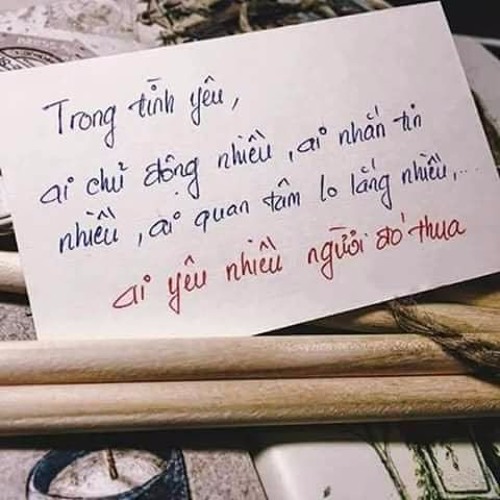 Trong tình yêu,
ai chủ động nhiều, ai nhắn tin
nhiều, ai quan tâm lo lắng nhiều,...
ai yêu nhiều người đó thua